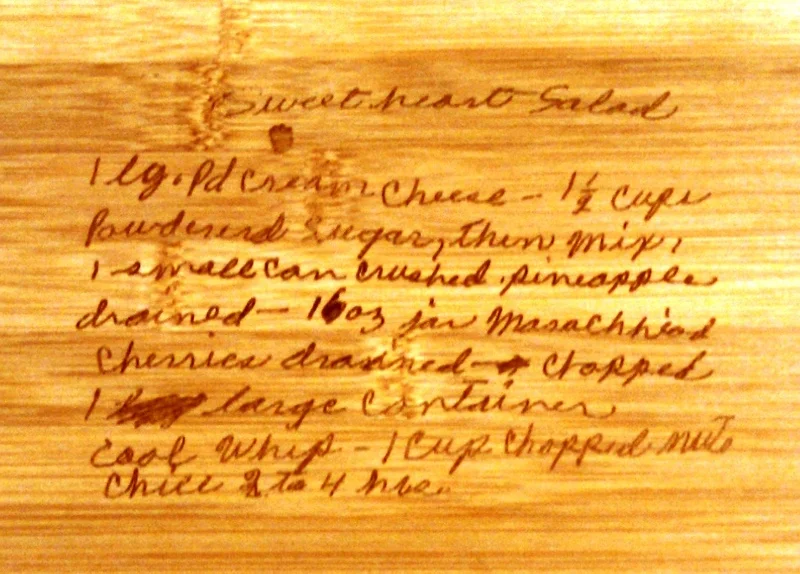 Sweetheart Salad
1 lg. Pd Cream Cheese - 1½ Cups
Powdererd Sugar, then mix,
1 small can crushed pineapple
drained - 16 oz jar
Cherries drained - Chopped
1 large Container
Cool Whip - 1 Cup Chopped nuts
Chill 2 to 4 hrs.